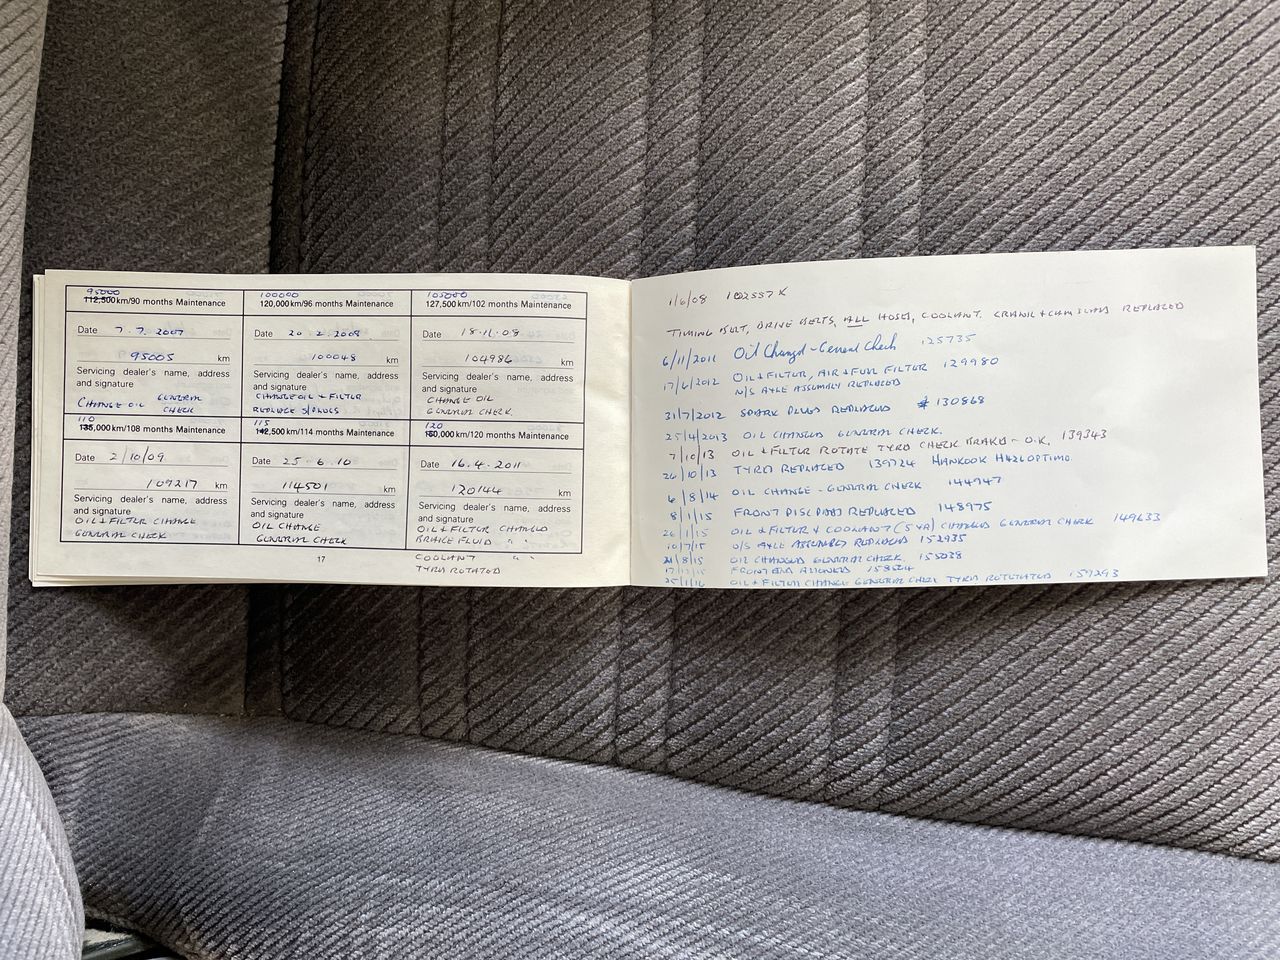 95000
112,500km/90 months Maintenance
Date 7.7.2007
95005 km
Servicing dealer's name, address
and signature
CHANGE OIL GENERAL
CHECK
100000
120,000km/96 months Maintenance
Date 20.2.2008
100048 km
Servicing dealer's name, address
and signature
CHANGE OIL + FILTER
REPLACE S/PLUGS
105000
127,500km/102 months Maintenance
Date 18.11.08
104986 km
Servicing dealer's name, address
and signature
CHANGE OIL
GENERAL CHECK.
110
135,000km/108 months Maintenance
Date 2/10/09
109217 km
Servicing dealer's name, address
and signature
OIL + FILTER CHANGE
GENERAL CHECK
115
142,500km/114 months Maintenance
Date 25.6.10
114501 km
Servicing dealer's name, address
and signature
OIL CHANGE
GENERAL CHECK
120
150,000km/120 months Maintenance
Date 16.4.2011
120144 km
Servicing dealer's name, address
and signature
OIL + FILTER CHANGED
BRAKE FLUID " "
COOLANT " "
TYRES ROTATED
17
1/6/08 102557K
TIMING BELT, DRIVE BELTS, ALL HOSES, COOLANT. CRANK + CAM SEALS REPLACED
6/11/2011 Oil Changed - General Check 125735
17/6/2012 OIL + FILTER, AIR + FUEL FILTER 129980
N/S AXLE ASSEMBLY REPLACED
31/7/2012 SPARK PLUGS REPLACED 130868
25/4/2013 OIL CHANGED GENERAL CHECK.
7/10/13 OIL + FILTER ROTATE TYRES CHECK BRAKES - O.K. 139343
26/10/13 TYRES REPLACED 139724 HANKOOK H426 OPTIMO.
6/8/14 OIL CHANGE - GENERAL CHECK 144947
8/1/15 FRONT DISC PADS REPLACED 148975
26/1/15 OIL + FILTER + COOLANT (5 YR) CHANGED GENERAL CHECK 149633
10/7/15 O/S AXLE ASSEMBLY REPLACED 152935
/8/15 OIL CHANGED GENERAL CHECK 155038
FRONT END ALIGNED
25/1/16 OIL + FILTER CHANGE GENERAL CHECK TYRES ROTATED 159293